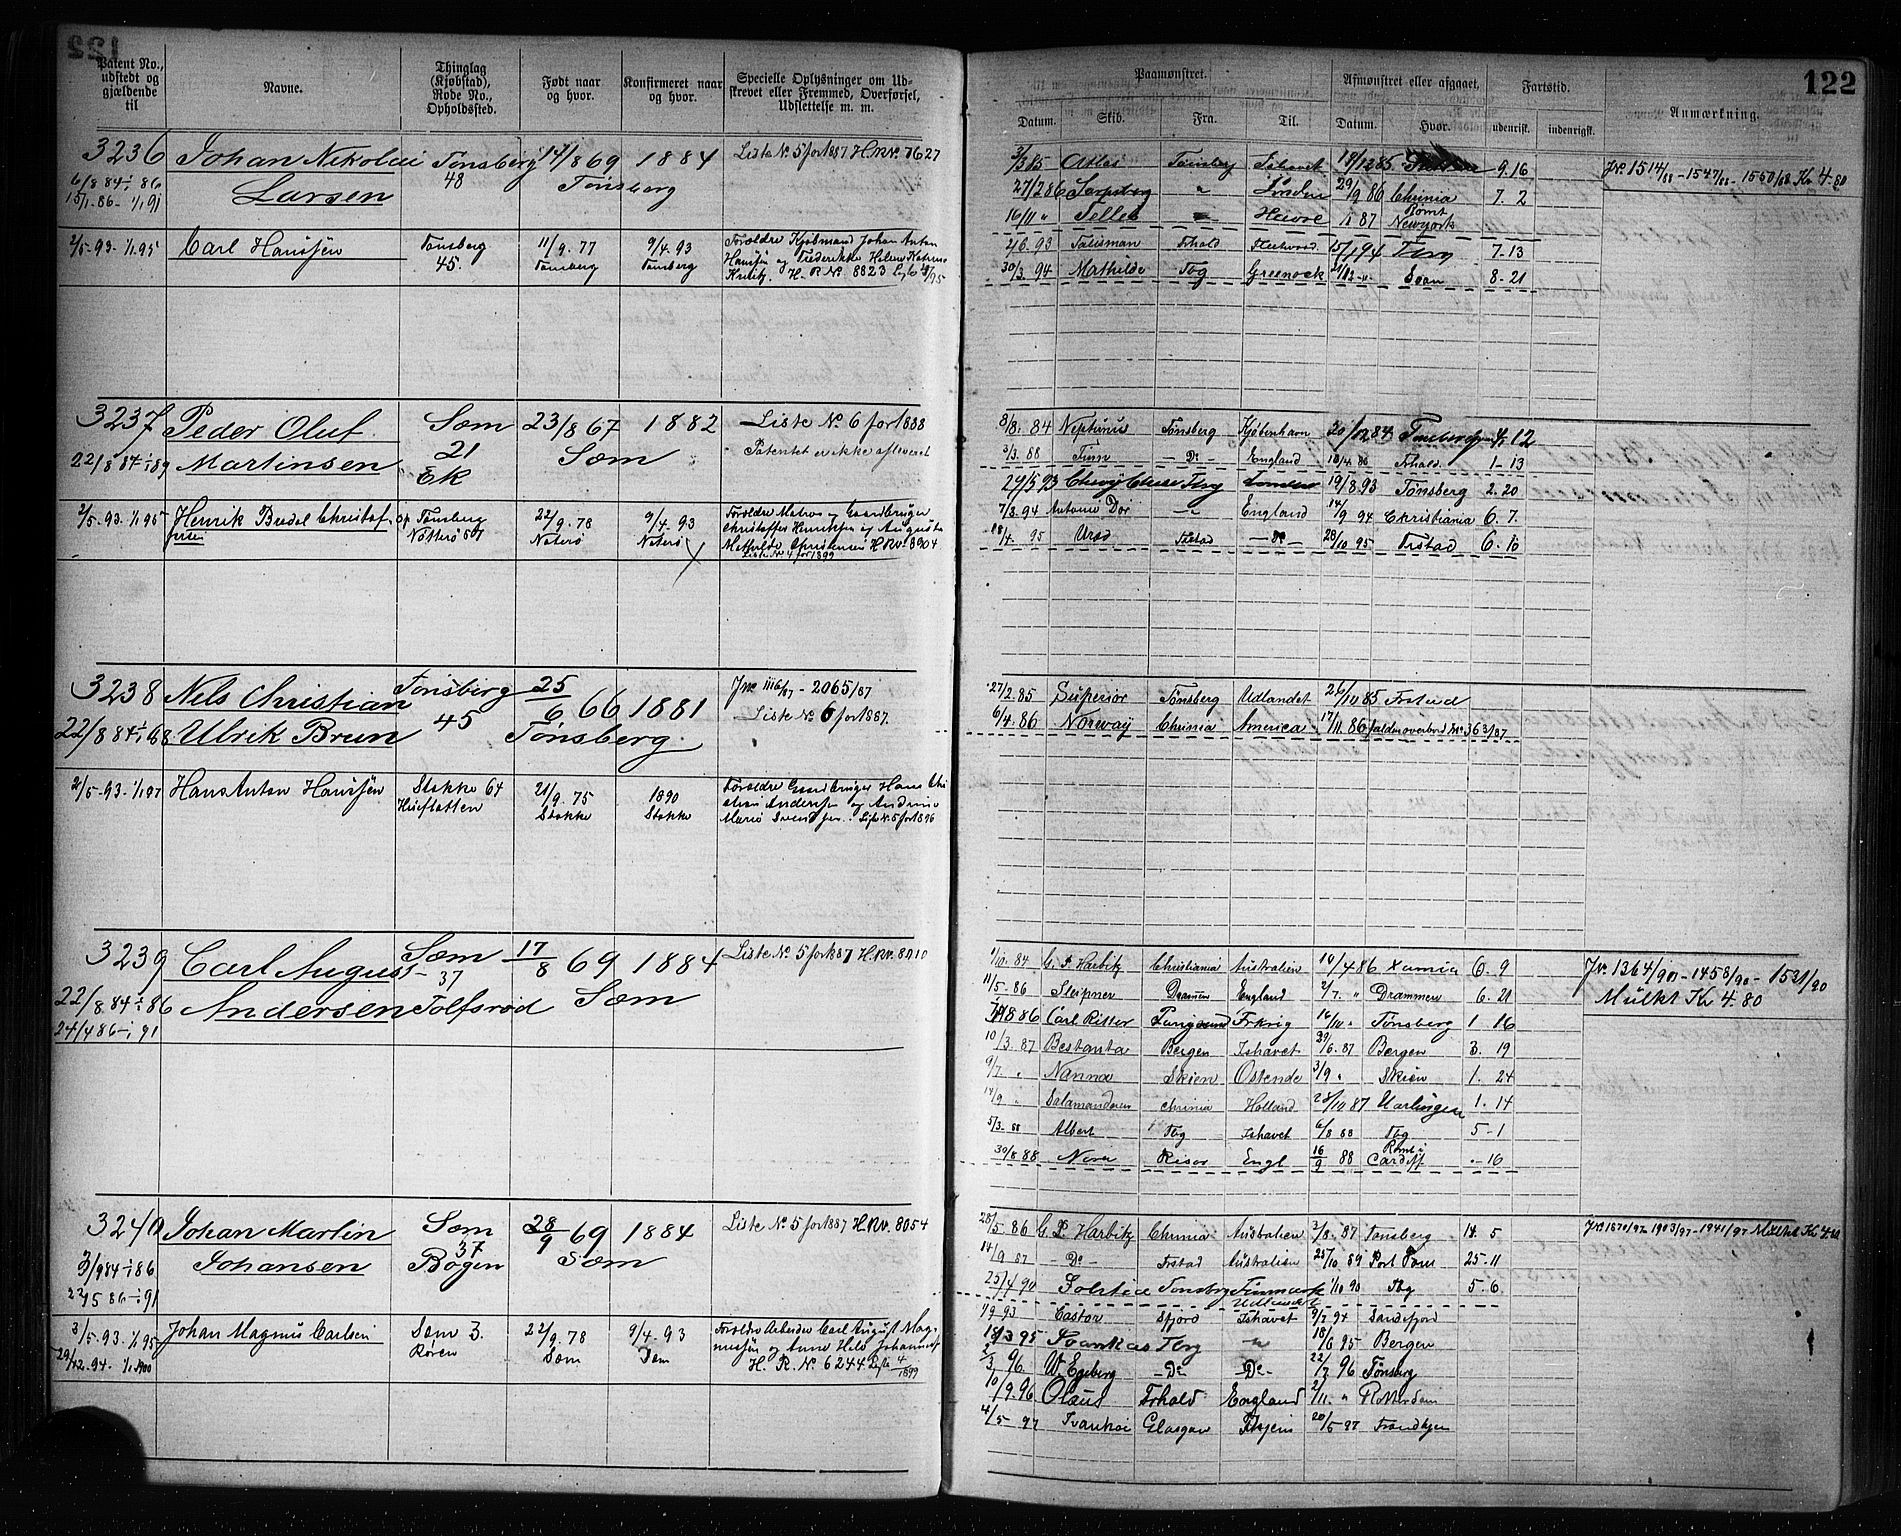 122
Patent No., udstedt og gjældende til
Navne.
Thinglag (Kjøbstad), Rode No., Opholdssted.
Født naar og hvor.
Konfirmeret naar og hvor.
Specielle Oplysninger om Udskrevet eller Fremmed, Overførsel, Udslettelse m. m.
Paamønstret.
Afmønstret eller afgaaet.
Fartstid.
Anmærkning.
Datum. Skib. Fra. Til. Datum. Hvor. udenrigsk. indenrigsk.
3236 Johan Nikolai Tønsberg 14/8 69 1884 Liste No 5 for 1887 H.No. 7627
6/8 84 - 1/1 86 Larsen 48 Tønsberg
15/1. 86 - 1/1 91
3/3 85 Atlas Tønsberg Ishavet 18/12 85 9.16
27/2 86 Sarpsborg " 29/9 86 Chrinia 7. 2
16/11 " Rømt Newyork
Jno. 1514/88 - 1547/88 - 1560/88 Kr 4.80
2/5-93-1/1 95 Carl Hanssen Tønsberg 11/9. 77 9/4. 93 Forældre Kjøbmand Johan Anton
45. Tønsberg Tønsberg Hanssen og Frederikke Helene
H. R No. 8823
Talisman Frhald Fleetwood 7-13
30/3. 94 Mathilde Tbg Greenock 8-21
3237 Peder Oluf Sæm 23/8 67 1882 Liste No 6 for 1888
22/8 84 - 1/1 89 Martinsen 21 Sæm Patentet er ikke afleveret
Ek
8/8. 84 Neptunus Tønsberg Kjøbenhavn 20/12 84 Tønsberg 4. 12
3/3. 88 - Do - England 18/4. 88 Frhald. 1-13
2/5-93-1/1 95 Henrik Budal Christoffersen Tønsberg 22/9. 78 9/4. 93 Forældre Matros og Gaardbruger
Nøtterø 57 Nøterø Nøterø Christoffer Henriksen og Augusta
Mathilde Christensen H.R No. 8904
Liste No 4 for 1899
24/5 93 Chevy Chase Tbrg London 19/8. 93 Tønsberg 2. 20
7/3. 94 Antonie Dor England 14/9 94 Christiania 6. 7.
18/4. 95 Urød Frstad - Do - 28/10 95 Frstad 6. 10
3238 Nels Christian Tønsberg 25/6 66 1881 Jno 1116/87 - 2065/87
22/8 84 - 1/1 88 Ulrik Brun 45 Tønsberg Liste No 6 for 1887.
27/2. 85 Superior Tønsberg Udlandet 26/10 85 Frstad
6/4. 86 Norway Chrinia America 17/11. 86 falden overbord No 363/87
2/5-93-1/1 97 Hans Anton Hanssen Stokke 64 21/9. 75 1890 Forældre Gaardbruger Hans Christian
Stokke Stokke Andersen og Andrine
Marie Svendsen. Liste No. 5 for 1896
3239 Carl August Sæm 17/8 69 1884 Liste No 5 for 1887 H.No. 8010
22/8. 84 - 1/1 86 Andersen 37 Tolfsrød Sæm
24/4 86 - 1/1 91
1/10. 84 G. P Harbitz Christiania Australien 10/4 86 6. 9
11/5-86 Sleipner Drammen England 2/7. " Drammen 6. 21
Carl Ritter Langesund Frkrig 16/10 " Tønsberg 1 16
10/3. 87 Bergen Ishavet 29/6. 87 Bergen 3. 19
9/7. " Nanna Skien Ostende 3/9 " Skien 1. 24
14/9 " Salamanderen Chrinia Holland 28/10 87 Harlingen 1. 14
5/3. 88 Albert Tbg Ishavet 6/8 88 Tbg 5-1
30/8. 88 Nora Risør Engl 16/9 88 Rømt i Cardiff .-16
Jno. 1364/90 - 1458/90 - 1531/90
Mulkt Kr 4.80
3240 Johan Martin Sæm 28/9 69 1884 Liste No 5 for 1887 H.No. 8054
3/9 84 - 1/1 86 Johansen 37 Bogen Sæm
22/5 86 - 1/1 91
28/5. 86 G. P Harbitz Chrinia Australien 2/8. 87 Tønsberg 14. 5
14/9 87 - Do - Frstad Australien 25/10. 89 25-11
25/4 90 Solstice Tønsberg Finmark 1/10 90 Tbg 5.6.
Jno 1870/97-1903/97-1941/97 Mulkt Kr 4.80
3/5-93-1/1 95 Johan Magnus Carlsen Sæm 3. 22/9. 78 9/4. 93 Forældre Arbeider Carl August Magnussen
29/12. 94-1/1 1900 Røren Sæm Sem og Anne Helo Johannesd
H. R. No 6244 Liste 4/1899
1/9 93 Castor Sfjord Udlandet Ishavet 9/7 94 Sandefjord
18/3 95 Tbrg " 18/6 95 Bergen
2/3. 96. W Egeberg - Do - - Do - 22/7 96 Tønsberg
10/9. 96 Olaus Frhald England 2/11. " Rotterdam
4/5-97 Ivanhoe Glasgow 20/5 97 Trondhjem